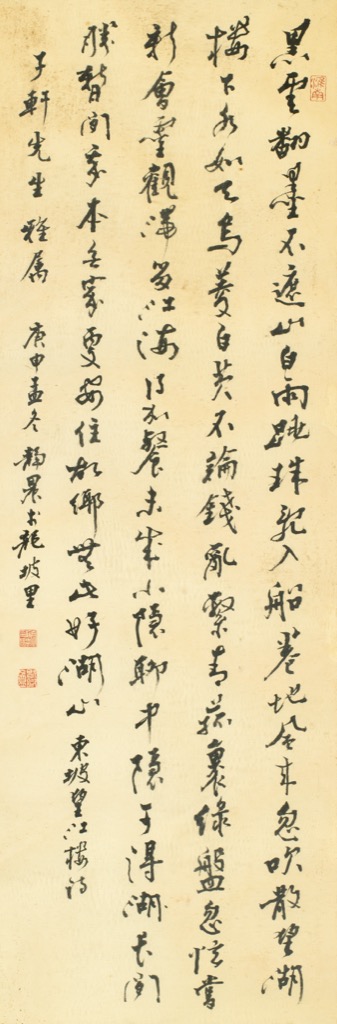 黑雲翻墨不遮山白雨跳珠亂入船卷地風来忽吹散望湖
樓下水如天烏菱白芡不論錢亂繫青菰裹綠盤忽憶嘗
新會靈觀滯留江海得加餐未成小隱聊中隱可得湖長閒
勝暫閒我本無家更安往故鄉無此好湖山 東坡望江樓詩
子軒先生雅属 庚申孟冬靜農於龍坡里